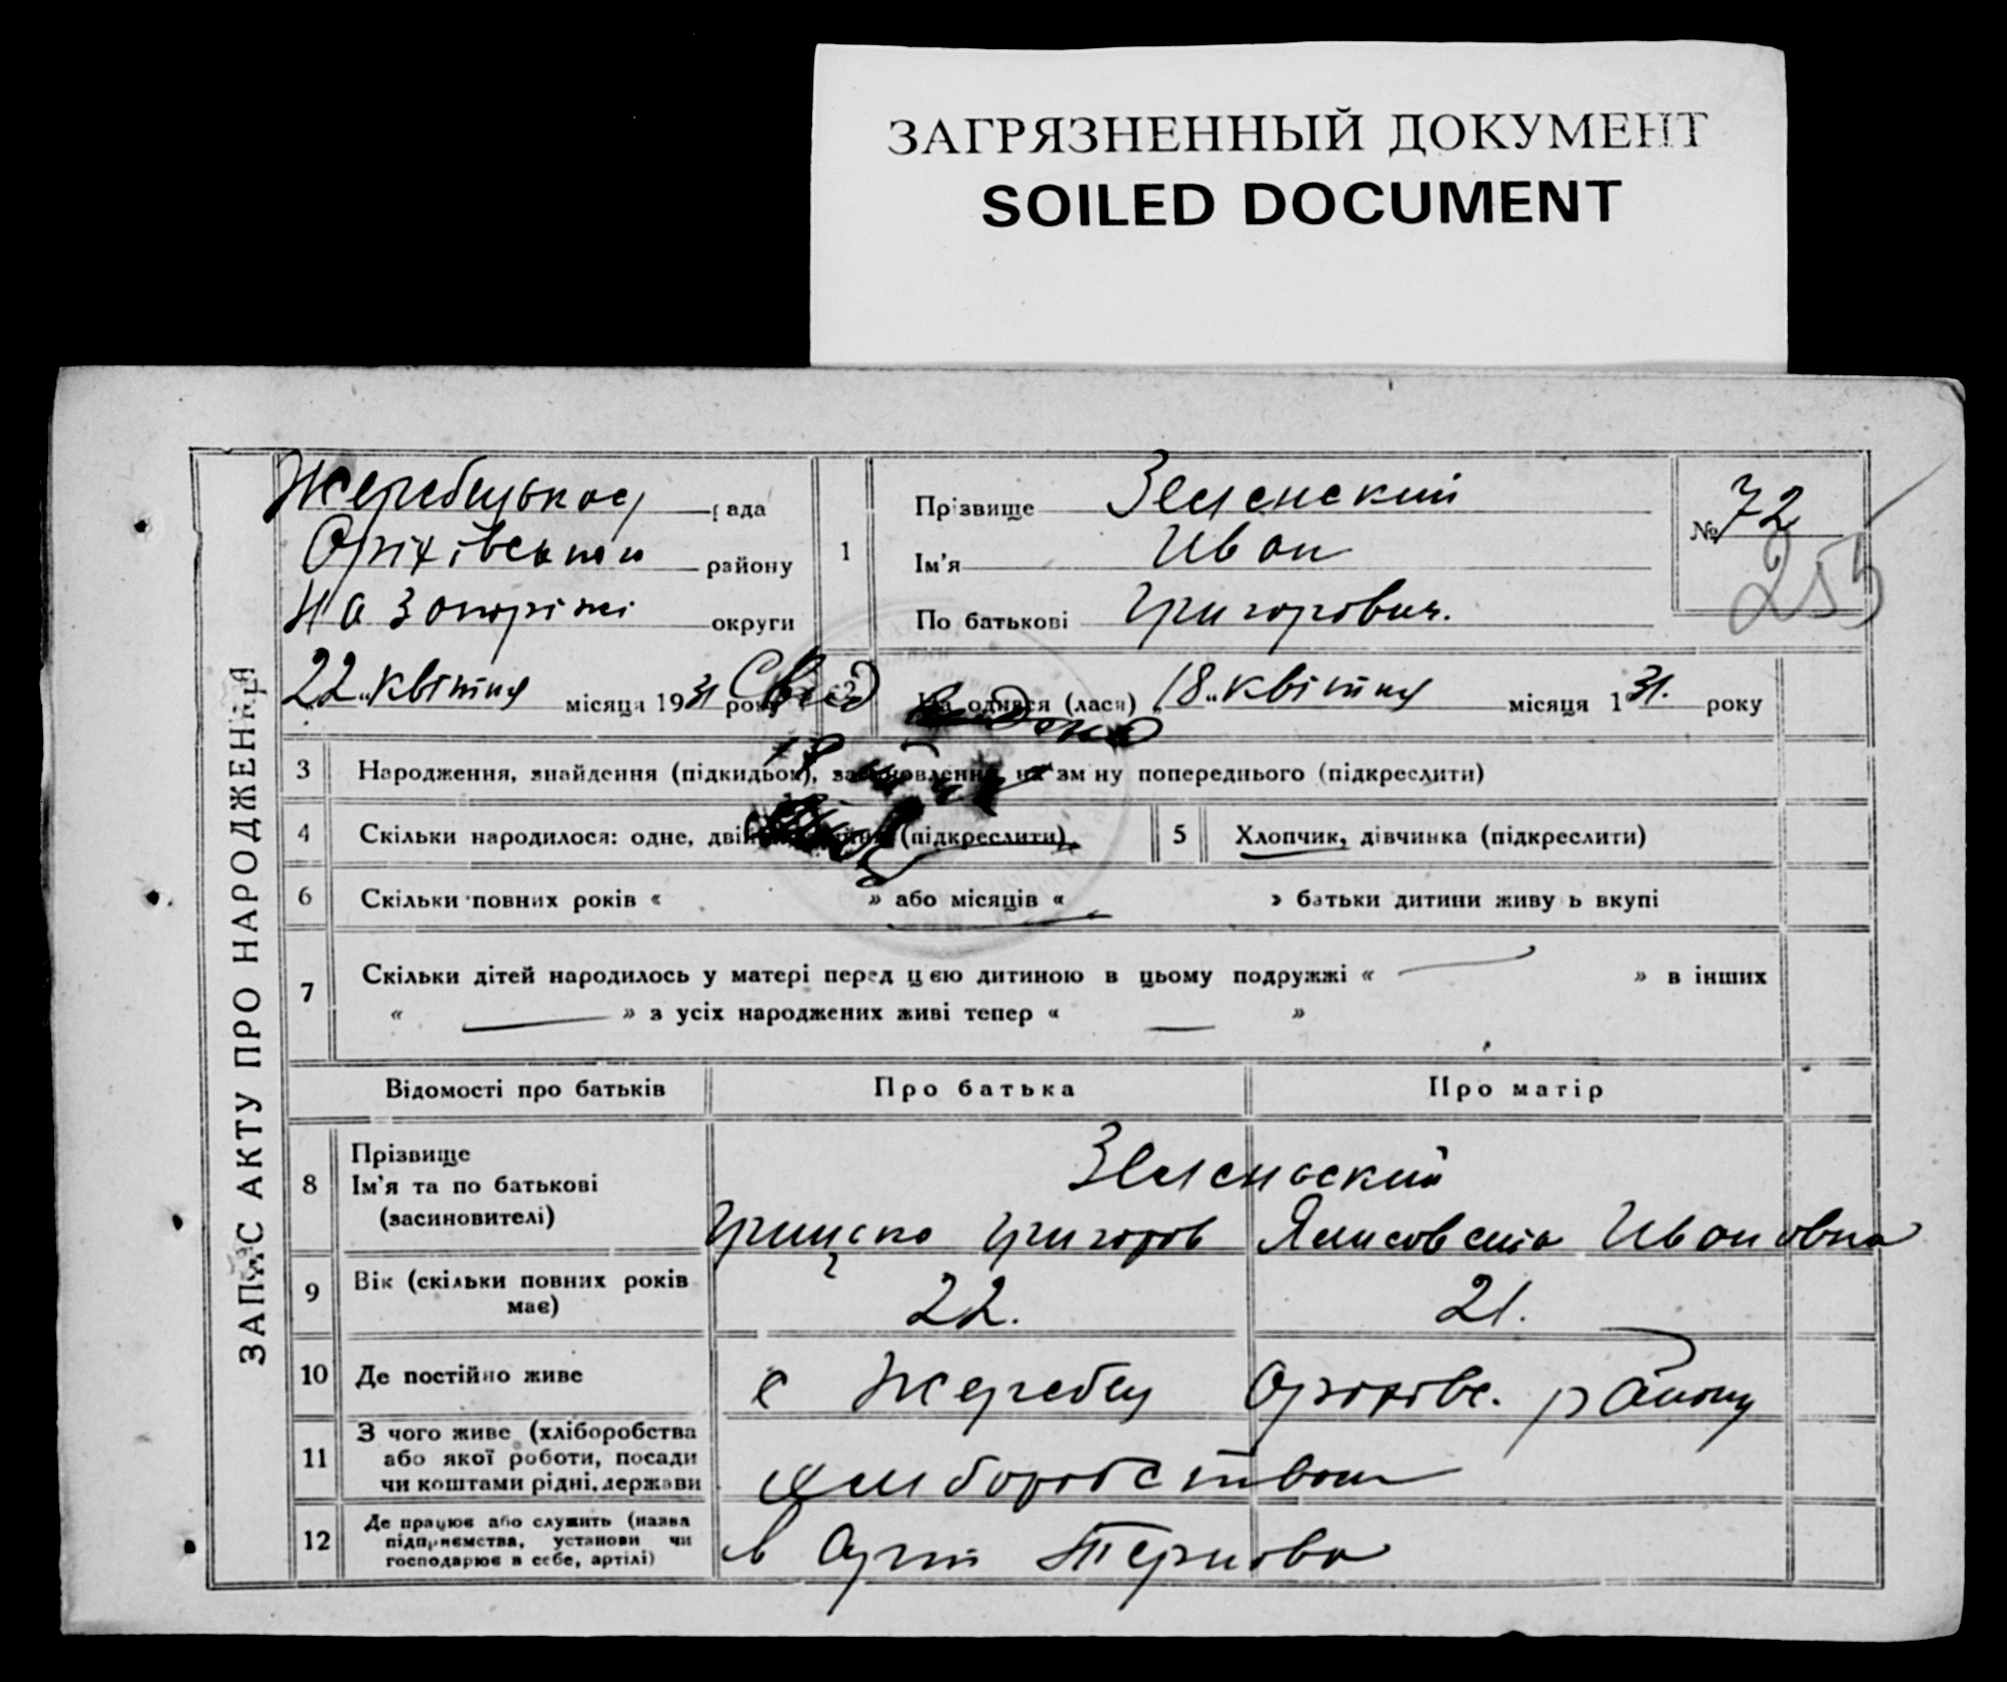 ЗАГРЯЗНЕННЫЙ ДОКУМЕНТ
SOILED DOCUMENT
ЗАПИС АКТУ ПРО НАРОДЖЕННЯ
Жеребецькоі рада
Оріхівський району
На Запоріжі округи
22 „ квітня місяця 1931 року
1
Прізвище Зеленский
Ім'я Иван
По батькові Григорович.
№ 72
255
Свід
2
одився (лася) „ 18 „ квітня місяця 1 31. року
3 Народження, знайдення (підкидьом), на зм ну попереднього (підкреслити)
4 Скільки народилося: одне, (підкреслити)
5 Хлопчик, дівчинка (підкреслити)
6 Скільки повних років « » або місяців « » батьки дитини живу ь вкупі
7 Скільки дітей народилось у матері перед цією дитиною в цьому подружжі « — » в інших
« — » з усіх народжених живі тепер « — »
Відомості про батьків Про батька Про матір
8 Прізвище
Ім'я та по батькові
(засиновителі)
Зеленьский
Грицско Григоров Ялисовета Ивановна
9 Вік (скільки повних років
має)
22. 21.
10 Де постійно живе
с Жеребец Оріхівс. району
11 З чого живе (хліборобства
або якої роботи, посади
чи коштами рідні, держави
хлиборобством
12 Де працює або служить (назва
підприємства, установи чи
господарює в себе, артілі)
в Тернова